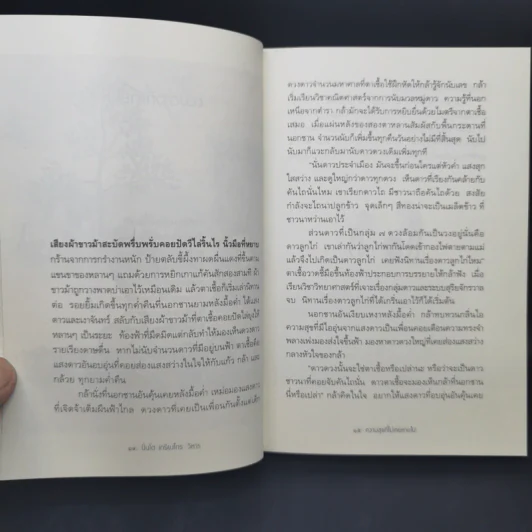 เสียงผ้าขาวม้าสะบัดพรึ่บพรั่บคอยปัดวีไล่ริ้นไร นิ้วมือที่หยาบ
กร้านจากการกรำงานหนัก ป้ายตลับขี้ผึ้งทาตามผื่นแดงที่ขึ้นตาม
แขนขาของหลานๆ แถมด้วยการหยิกเกาแก้คันสักสองสามที ผ้า
ขาวม้าถูกวางพาดบ่าเอาไว้เหมือนเดิม แล้วตาเชื้อก็เริ่มเล่านิทาน
ต่อ รอยยิ้มเกิดขึ้นทุกค่ำคืนที่นอกชานยามหลังมื้อค่ำ ใต้แสง
ดาวและเงาจันทร์ สลับกับเสียงผ้าขาวม้าที่ตาเชื้อคอยปัดไล่ยุงให้
หลานๆ เป็นระยะ ท้องฟ้าที่มืดมิดแต่กลับทำให้มองเห็นดวงดาว
รายเรียงดาษดื่น หากไม่นับจำนวนดาวที่มีอยู่บนฟ้า ตาเชื้อคือ
แสงดาวอันอบอุ่นที่คอยส่องแสงสว่างในใจให้กับแก้ว กล้า และ
กล้วย ทุกยามค่ำคืน
กล้านั่งที่นอกชานอันคุ้นเคยหลังมื้อค่ำ เหม่อมองแสงดาว
ที่เจิดจ้าเต็มผืนฟ้าไกล ดวงดาวที่เคยเป็นเพื่อนกันตั้งแต่เด็ก
ดวงดาวจำนวนมหาศาลที่ตาเชื้อใช้ฝึกหัดให้กล้ารู้จักนับเลข กล้า
เริ่มเรียนวิชาคณิตศาสตร์จากการนับมวลหมู่ดาว ความรู้ที่นอก
เหนือจากตำรา กล้ามักจะได้รับการหยิบยื่นด้วยไมตรีจากตาเชื้อ
เสมอ เมื่อแผ่นหลังของสองตาหลานสัมผัสกับพื้นกระดานที่
นอกชาน จำนวนนับก็เพิ่มขึ้นทุกคืนวันอย่างไม่มีที่สิ้นสุด นับไป
นับมาก็แวะกลับมานับดาวดวงเดิมเพิ่มทุกที
"นั่นดาวประจำเมือง มันจะขึ้นก่อนใครแต่หัวค่ำ แสงสุก
ใสสว่าง และดูใหญ่กว่าดาวทุกดวง เห็นดาวที่เรียงกันคล้ายกับ
คันไถนั่นไหม เขาเรียกดาวไถ มีชาวนาถือคันไถด้วย สงสัย
กำลังจะไถนาปลูกข้าว จุดเล็กๆ สีทองน่าจะเป็นเมล็ดข้าว ที่
ชาวนาหว่านเอาไว้
ส่วนดาวที่เป็นกลุ่ม ๗ ดวงล้อมกันเป็นวงอยู่นั่นคือ
ดาวลูกไก่ เขาเล่ากันว่าลูกไก่พากันโดดเข้ากองไฟตายตามแม่
แล้วจึงไปเกิดเป็นดาวลูกไก่ เคยฟังนิทานเรื่องดาวลูกไก่ไหม"
ตาเชื้อวาดชี้มือขึ้นท้องฟ้าประกอบการบรรยายให้กล้าฟัง เมื่อ
เรียนวิชาวิทยาศาสตร์ที่จะเรื่องกลุ่มดาวและระบบสุริยจักรวาล
จบ นิทานเรื่องดาวลูกไก่ที่ได้เกริ่นเอาไว้ก็ได้เริ่มต้น
นอกชานอันเงียบเหงาหลังมื้อค่ำ กล้าทบทวนกลิ่นไอ
ความสุขที่มีไออุ่นจากแสงดาวเป็นเพื่อนคอยเตือนความทรงจำ
พลางเหม่อมองส่งใจขึ้นฟ้า มองหาดาวดวงใหญ่ที่เคยส่องแสงสว่าง
กลางหัวใจของกล้า
"ดาวดวงนั้นจะใช่ตาเชื้อหรือเปล่านะ หรือว่าจะเป็นดาว
ชาวนาที่คอยจับคันไถนั่น ดาวตาเชื้อจะมองเห็นกล้าที่นอกชาน
นี่หรือเปล่า" กล้าคิดในใจ อยากให้แสงดาวที่อบอุ่นอันคุ้นเคย